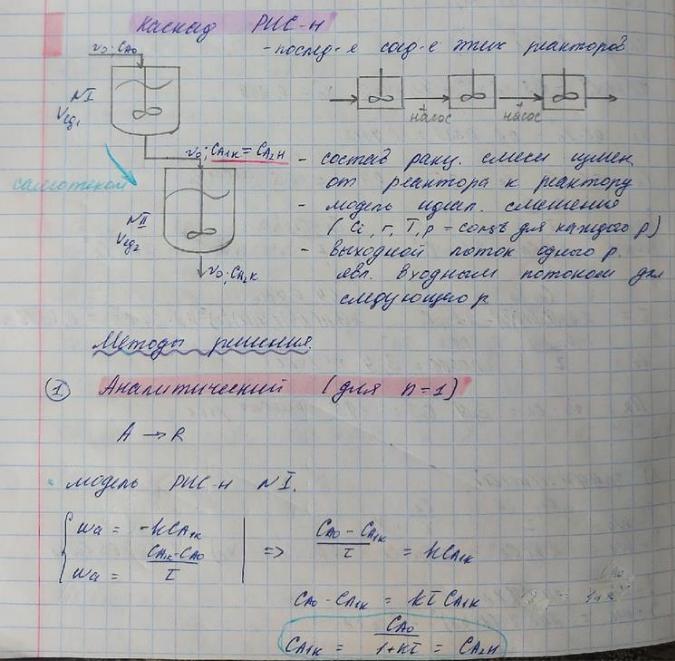 Каскад РИС-н
- послед-е соед-е этих реакторов
v0; CA0
NI
Vед1
насос насос
v0; CA1K = CA2H
самотеком
NII
Vед2
v0; CA2K
- состав реакц. смеси измен.
от реактора к реактору
- модель идеал. смешения
(Ci, r, T, p - const для каждого р)
- выходной поток одного р.
явл. входным потоком для
следующего р
Методы решения.
1 Аналитический (для n=1)
A → R
модель РИС-н NI.
wa = -kCA1K
wa = (CA1K - CA0)/τ
=> (CA0 - CA1K)/τ = kCA1K
CA0 - CA1K = kτCA1K
CA1K = CA0/(1+kτ) = CA2H